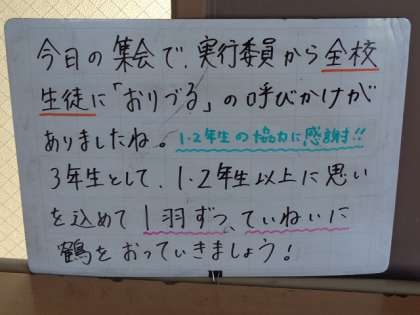 今日の集会で、実行委員から全校
生徒に「おりづる」の呼びかけが
ありましたね。1・2年生の協力に感謝!!
3年生として、1・2年生以上に思い
を込めて1羽ずつ、ていねいに
鶴をおっていきましょう!